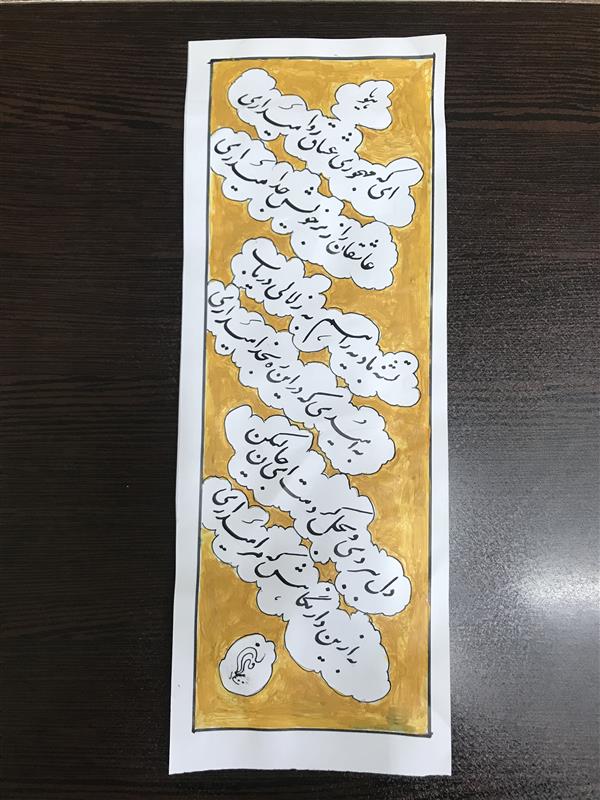 یا هو
ای که مهجوری عشاق روا میداری
عاشقان را ز بر خویش جدا میداری
تشنه بادیه را هم به زلالی دریاب
به امیدی که در این ره بخدا میداری
دل ببردی و بحل کردمت ای جان لیکن
به از این دار نگاهش که مرا میداری